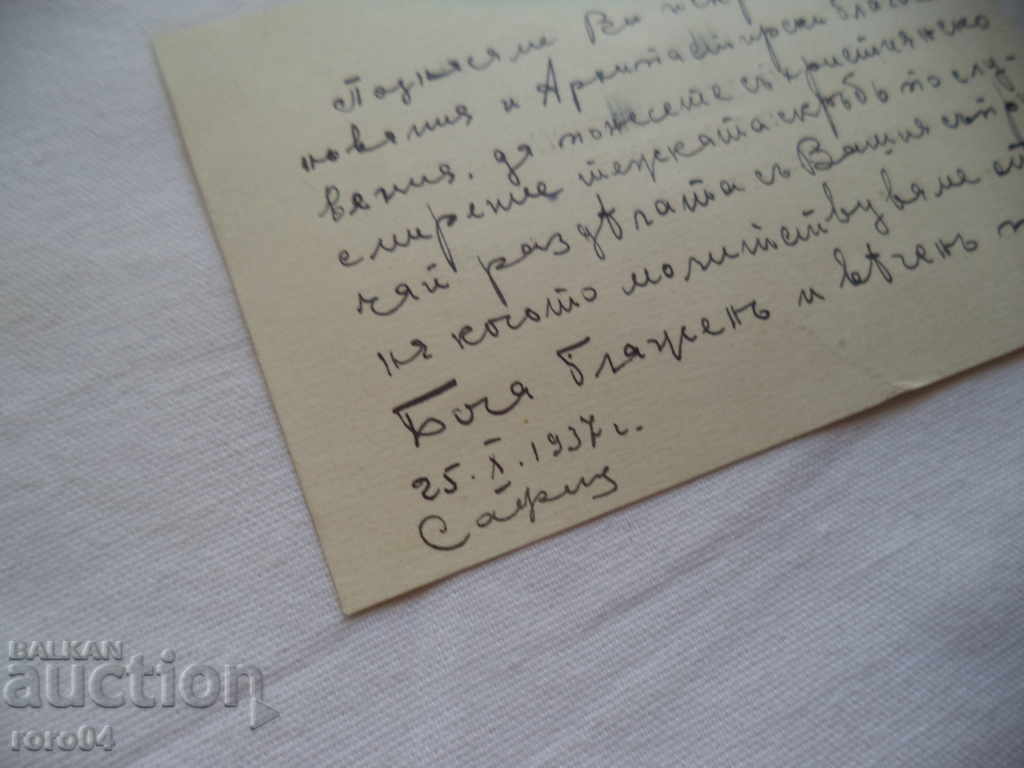 Поднасяме Ви искр
новения и Архипастирски благосло
вения, да можете съ християнско
смирение тежката скръбь по слу-
чай раздѣлата съ Вашия
за когото молитствуваме
Бога блаженъ и вѣченъ
25.X.1937 г.
София
BALKAN
auction
roro04